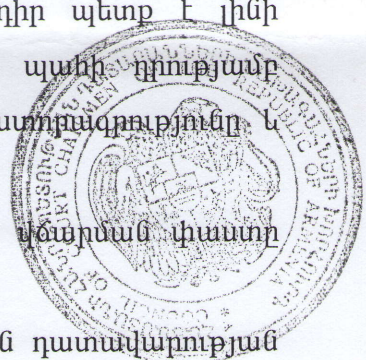 դիր պետք է լինի
պահի դրությամբ
ստորագրությունը և
վճարման փաստը
ն դատավարության
REPUBLIC OF ARMENIA
COUNCIL OF COURT CHAIRMEN